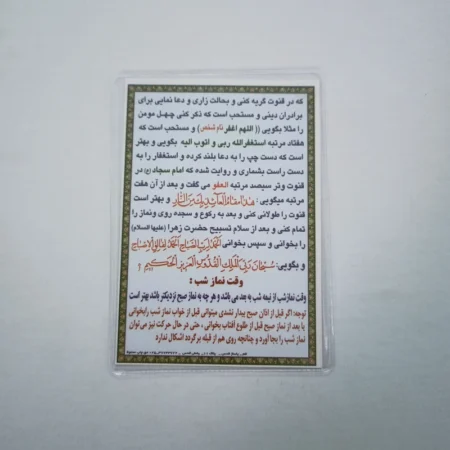 که در قنوت گریه کنی و بحالت زاری و دعا نمایی برای
برادران دینی و مستحب است که ذکر کنی چهل مومن
را مثلا بگویی (( اللهم اغفر نام شخص) و مستحب است که
هفتاد مرتبه استغفرالله ربی و اتوب الیه بگویی و بهتر
است که دست چپ را به دعا بلند کرده و استغفار را به
دست راست بشماری و روایت شده که امام سجاد (ع) در
قنوت وتر سیصد مرتبه العفو می گفت و بعد از آن هفت
مرتبه میگویی : هذا مقام العائذ بک من النار و بهتر است
قنوت را طولانی کنی و بعد به رکوع و سجده روی ونماز را
تمام کنی و بعد از سلام تسبیح حضرت زهرا (علیها السلام)
را بخوانی و سپس بخوانی الحمد لرب الصباح الحمد لفالق الاصباح
و بگویی: سبحان ربی الملک القدوس العزیز الحکیم
وقت نماز شب :
وقت نمازشب از نیمه شب به بعد می باشد و هر چه به نماز صبح نزدیکتر باشد بهتر است
توجه: اگر قبل از اذان صبح بیدار نشدی میتوانی قبل از خواب نماز شب رابخوانی
یا بعد از نماز صبح قبل از طلوع آفتاب بخوانی ، حتی در حال حرکت نیز می توان
نماز شب را بجا آورد و چنانچه روی هم از قبله برگردد اشکال ندارد